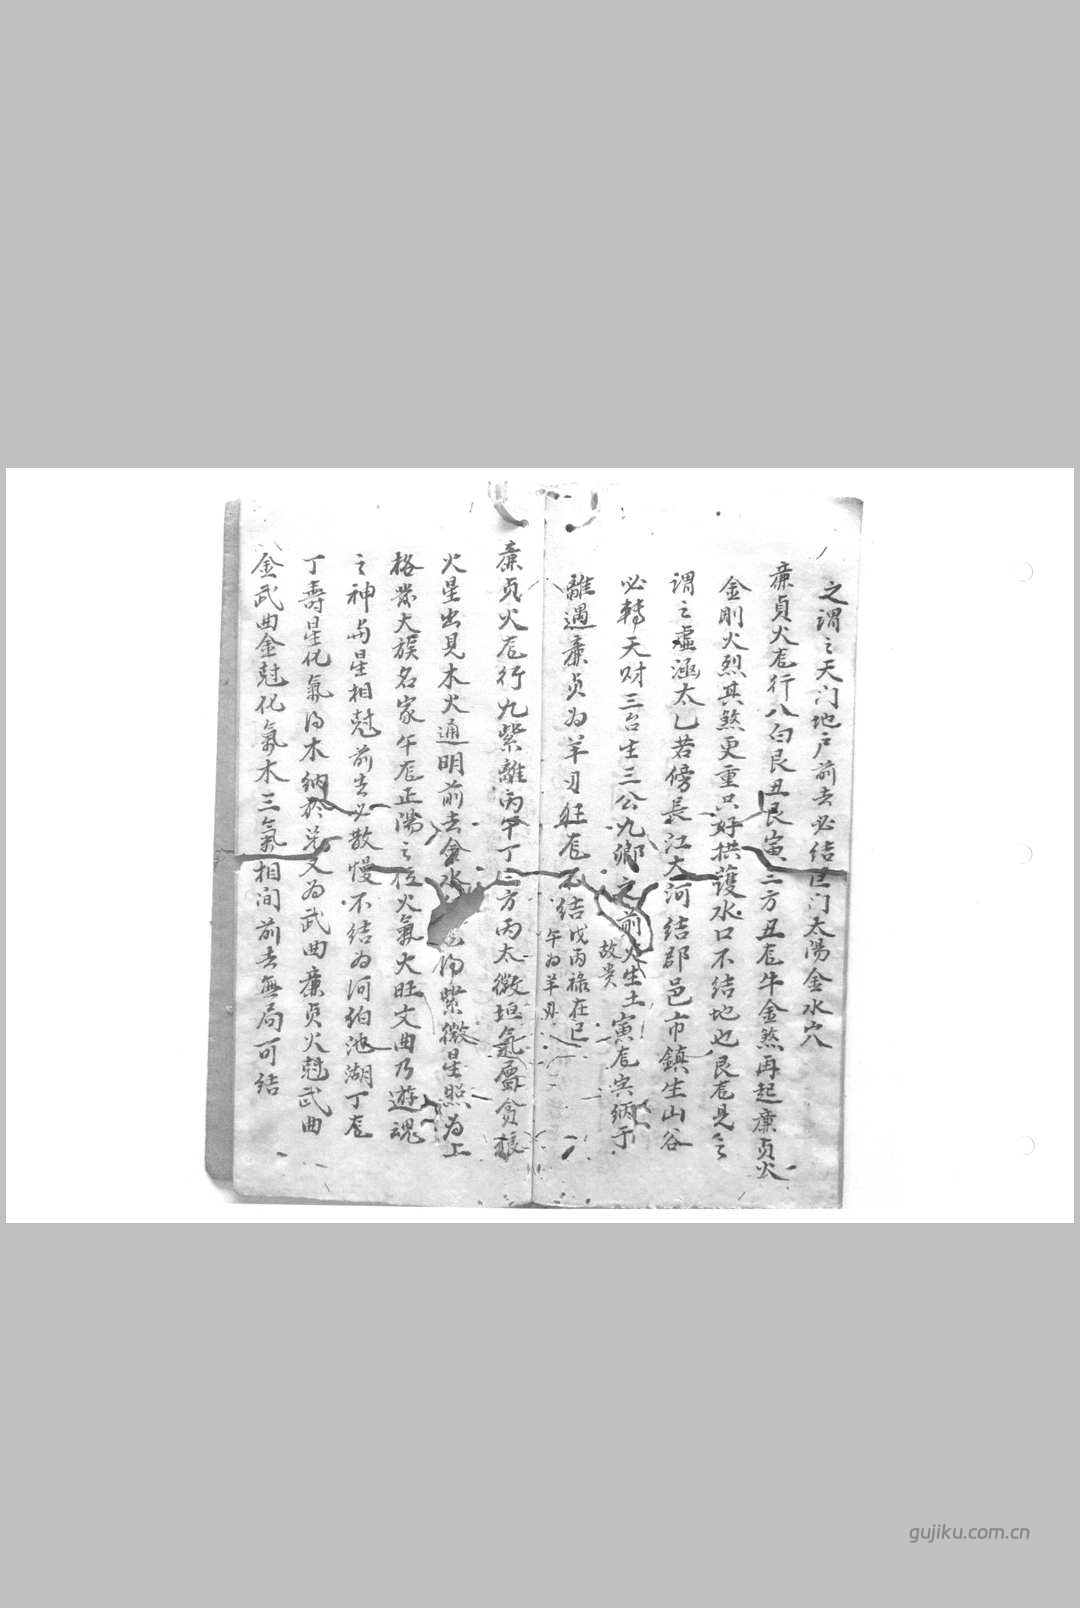 之謂之天门地户前去必结匡门太陽金水穴
廉貞火尨行八白艮丑艮寅三方丑尨牛金煞再起廉貞火
金剛火烈其煞更重只好拱護水口不结地也艮尨見之
謂之虛涵太乙若傍長江大河结郡邑市鎮生山谷
必轉天财三台生三公九卿之前火生土寅尨宾纳于
故贵
離遇廉貞为羊刃狂尨不结
戊丙祿在巳
午为羊刃
廉貞火尨行九紫離丙午丁三方丙太微垣氣層貪狼
火星出見木火通明前去金水 得紫微星照为上
格發大族名家午尨正陽之位火氣大旺文曲乃遊魂
之神与星相尅前去必散慢不结为河泊池湖丁尨
丁壽星化氣得木纳於 又为武曲廉貞火尅武曲
金武曲金尅化氣木三氣相间前去無局可结
gujiku.com.cn